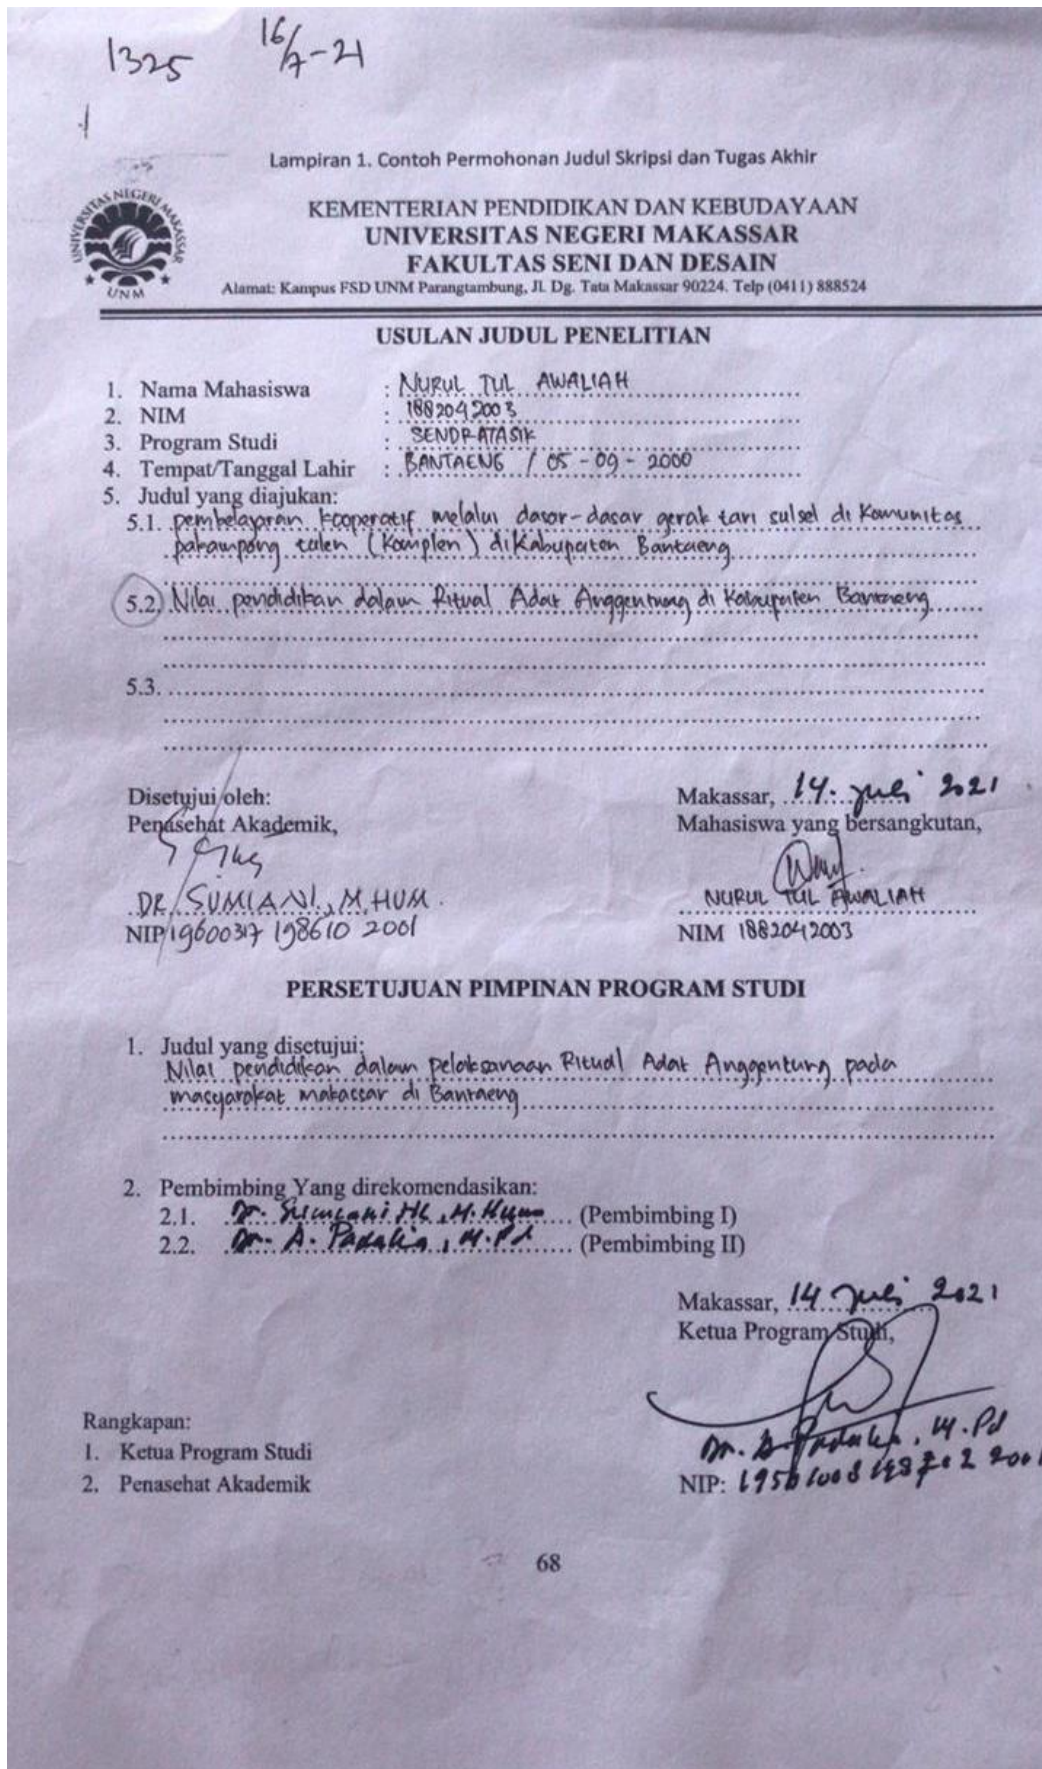 1325 16/7-21
Lampiran 1. Contoh Permohonan Judul Skripsi dan Tugas Akhir
UNIVERSITAS NEGERI MAKASSAR
UNM
KEMENTERIAN PENDIDIKAN DAN KEBUDAYAAN
UNIVERSITAS NEGERI MAKASSAR
FAKULTAS SENI DAN DESAIN
Alamat: Kampus FSD UNM Parangtambung, Jl. Dg. Tata Makassar 90224. Telp (0411) 888524
USULAN JUDUL PENELITIAN
1. Nama Mahasiswa : NURUL TUL AWALIAH
2. NIM : 1882042003
3. Program Studi : SENDRATASIK
4. Tempat/Tanggal Lahir : BANTAENG / 05 - 09 - 2000
5. Judul yang diajukan:
5.1. pembelajaran kooperatif melalui dasar-dasar gerak tari sulsel di Komunitas
pakampong talen (Komplen) di Kabupaten Bantaeng
5.2. Nilai pendidikan dalam Ritual Adat Anggentung di Kabupaten Bantaeng
5.3.
Disetujui oleh:
Penasehat Akademik,
DR. SUMIANI, M.HUM.
NIP 19600317 198610 2001
Makassar, 14 juli 2021
Mahasiswa yang bersangkutan,
NURUL TUL AWALIAH
NIM 1882042003
PERSETUJUAN PIMPINAN PROGRAM STUDI
1. Judul yang disetujui:
Nilai pendidikan dalam pelaksanaan Ritual Adat Anggentung pada
masyarakat makassar di Bantaeng
2. Pembimbing Yang direkomendasikan:
2.1. Dr. Sumiani HL, M.Hum (Pembimbing I)
2.2. Dr. A. Padalia, M.Pd (Pembimbing II)
Makassar, 14 juli 2021
Ketua Program Studi,
Dr. A. Padalia, M.Pd
NIP:
Rangkapan:
1. Ketua Program Studi
2. Penasehat Akademik
68